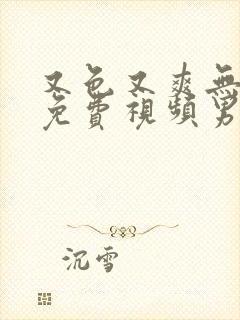 又色又爽無
免費視頻男
沉雪